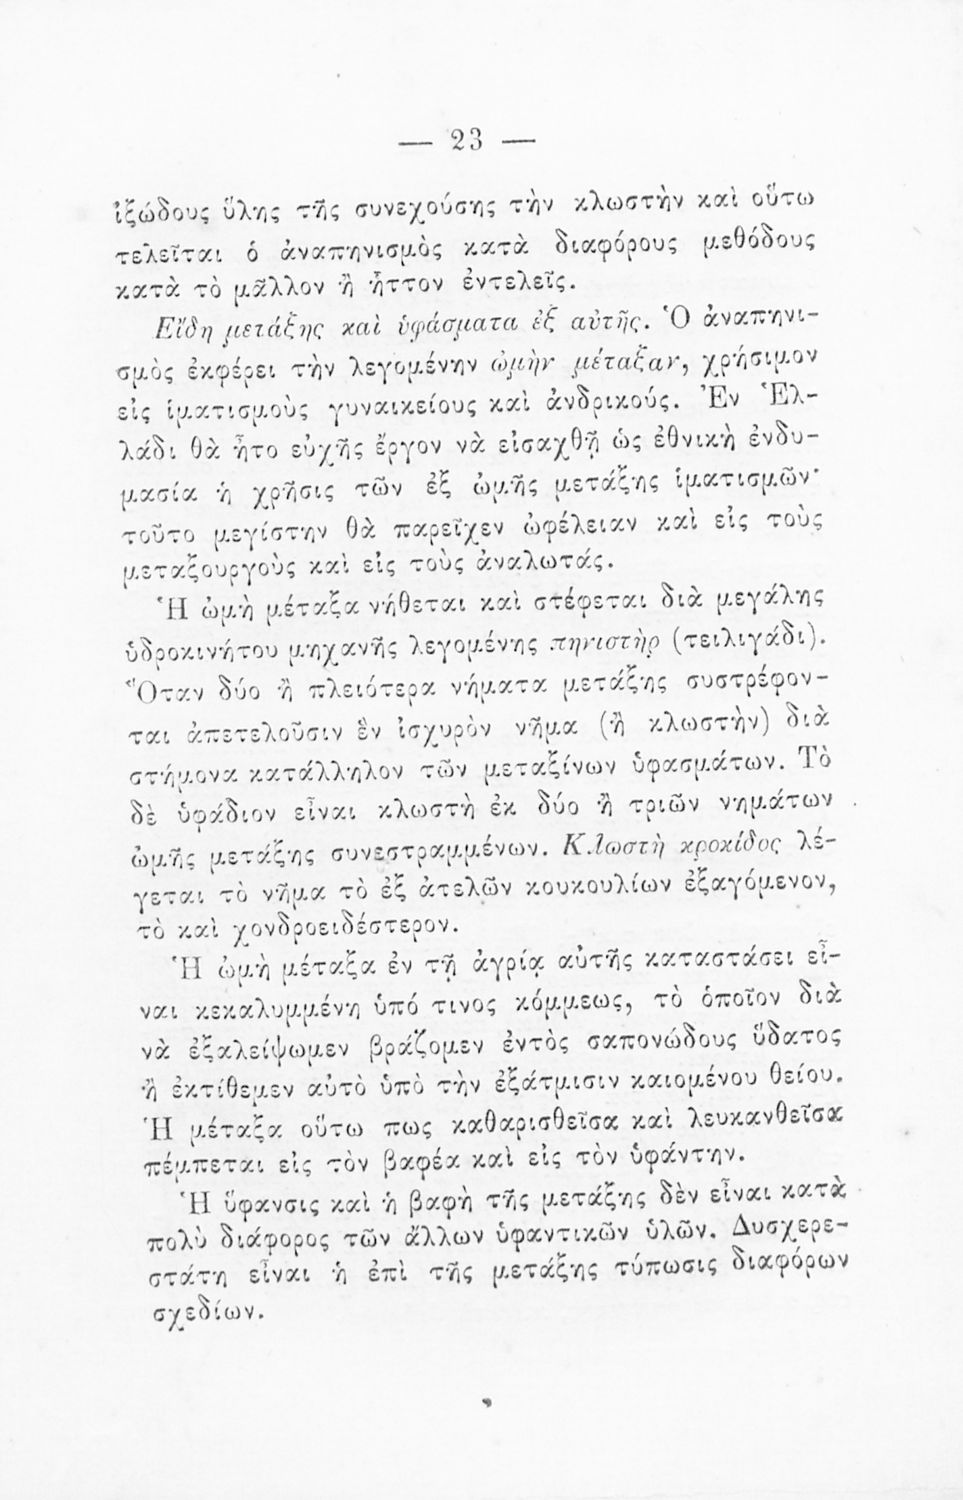 — 23 —
ἰξώδους ὕλης τῆς συνεχούσης τὴν κλωστὴν καὶ οὕτω
τελεῖται ὁ ἀναπηνισμὸς κατὰ διαφόρους μεθόδους
κατὰ τὸ μᾶλλον ἢ ἧττον ἐντελεῖς.
Εἴδη μετάξης καὶ ὑφάσματα ἐξ αὐτῆς. Ὁ ἀναπηνι-
σμὸς ἐκφέρει τὴν λεγομένην ὠμὴν μέταξαν, χρήσιμον
εἰς ἱματισμοὺς γυναικείους καὶ ἀνδρικούς. Ἐν Ἑλ-
λάδι θὰ ἦτο εὐχῆς ἔργον νὰ εἰσαχθῇ ὡς ἐθνικὴ ἐνδυ-
μασία ἡ χρῆσις τῶν ἐξ ὠμῆς μετάξης ἱματισμῶν·
τοῦτο μεγίστην θὰ παρεῖχεν ὠφέλειαν καὶ εἰς τοὺς
μεταξουργοὺς καὶ εἰς τοὺς ἀναλωτάς.
Ἡ ὠμὴ μέταξα νήθεται καὶ στέφεται διὰ μεγάλης
ὑδροκινήτου μηχανῆς λεγομένης πηνιστὴρ (τειλιγάδι).
Ὅταν δύο ἢ πλειότερα νήματα μετάξης συστρέφον-
ται ἀπετελοῦσιν ἓν ἰσχυρὸν νῆμα (ἢ κλωστὴν) διὰ
στήμονα κατάλληλον τῶν μεταξίνων ὑφασμάτων. Τὸ
δὲ ὑφάδιον εἶναι κλωστὴ ἐκ δύο ἢ τριῶν νημάτων
ὠμῆς μετάξης συνεστραμμένων. Κλωστὴ κροκίδος λέ-
γεται τὸ νῆμα τὸ ἐξ ἀτελῶν κουκουλίων ἐξαγόμενον,
τὸ καὶ χονδροειδέστερον.
Ἡ ὠμὴ μέταξα ἐν τῇ ἀγρίᾳ αὐτῆς καταστάσει εἶ-
ναι κεκαλυμμένη ὑπό τινος κόμμεως, τὸ ὁποῖον διὰ
νὰ ἐξαλείψωμεν βράζομεν ἐντὸς σαπονώδους ὕδατος
ἢ ἐκτίθεμεν αὐτὸ ὑπὸ τὴν ἐξάτμισιν καιομένου θείου.
Ἡ μέταξα οὕτω πως καθαρισθεῖσα καὶ λευκανθεῖσα
πέμπεται εἰς τὸν βαφέα καὶ εἰς τὸν ὑφάντην.
Ἡ ὕφανσις καὶ ἡ βαφὴ τῆς μετάξης δὲν εἶναι κατὰ
πολὺ διάφορος τῶν ἄλλων ὑφαντικῶν ὑλῶν. Δυσχερε-
στάτη εἶναι ἡ ἐπὶ τῆς μετάξης τύπωσις διαφόρων
σχεδίων.